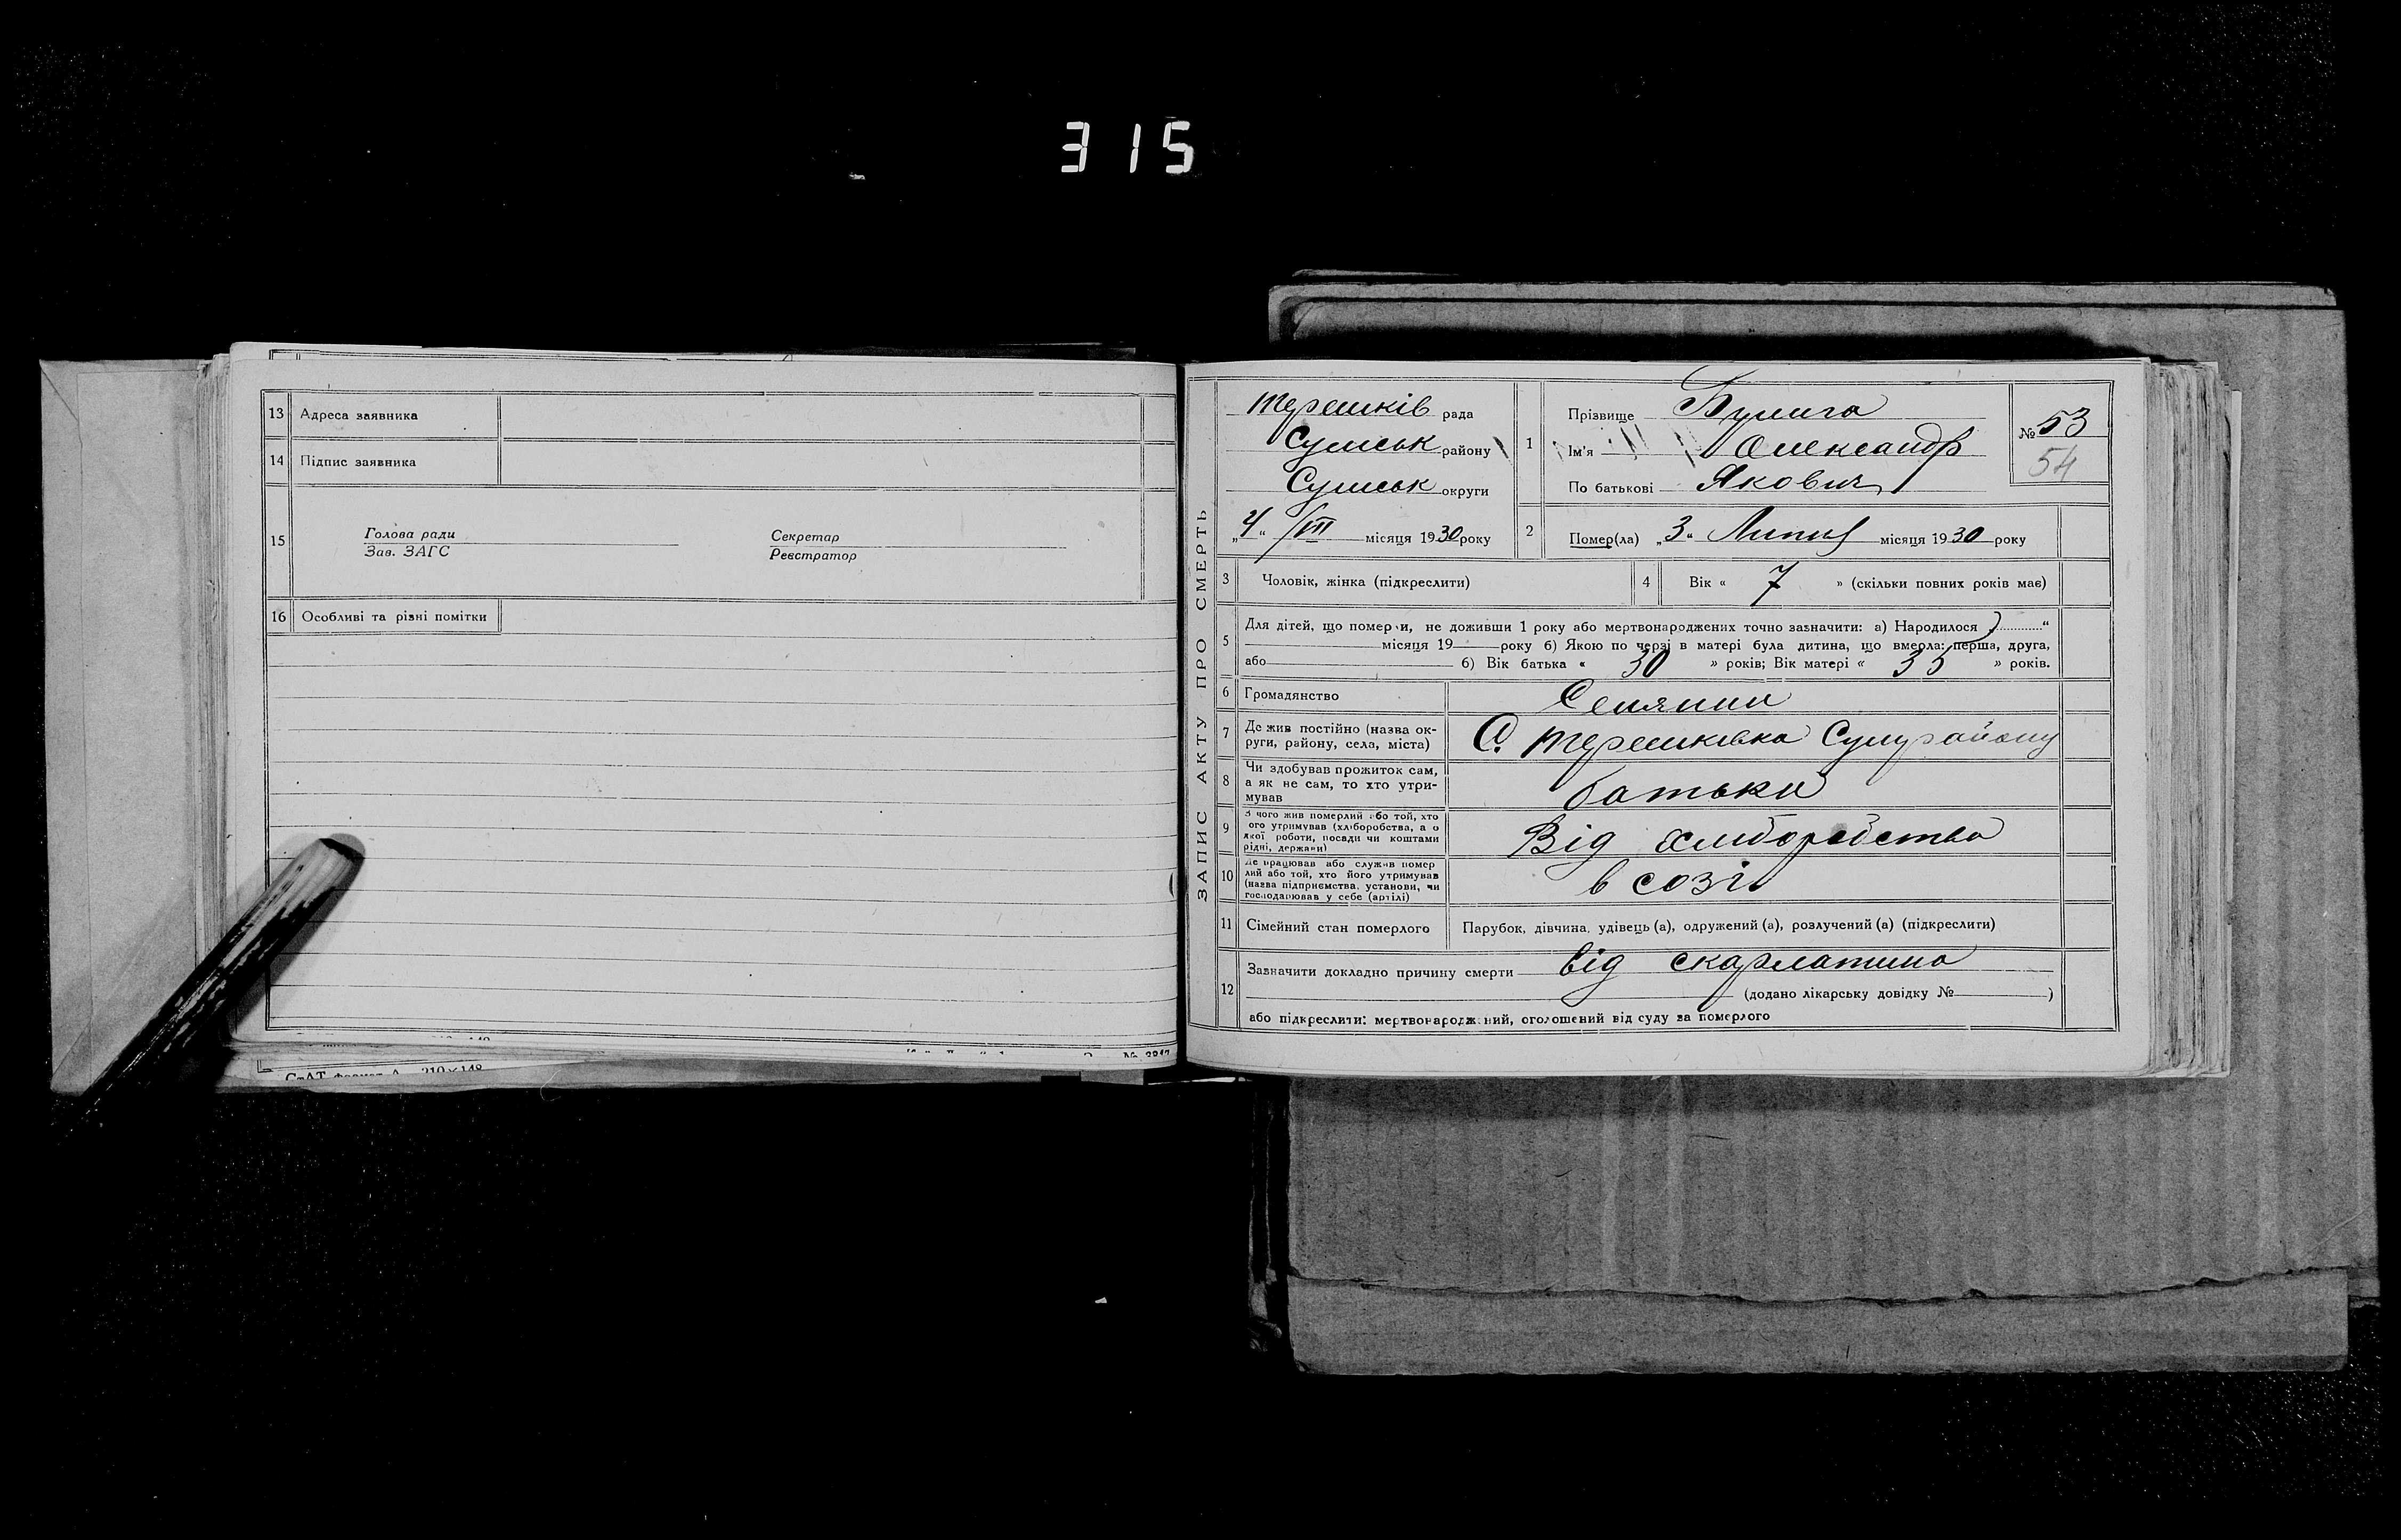 315
13 Адреса заявника
14 Підпис заявника
15 Голова ради Секретар
Зав. ЗАГС Реєстратор
16 Особливі та різні помітки
СтАТ формат А 210×148
ЗАПИС АКТУ ПРО СМЕРТЬ
Терешків рада
Сумськ району
Сумськ округи
„4“ /VII місяця 1930 року
1 Прізвище
Ім'я Олександр
По батькові Якович
№ 53
54
2 Помер(ла) „3“ Липня місяця 1930 року
3 Чоловік, жінка (підкреслити)
4 Вік « 7 » (скільки повних років має)
5 Для дітей, що померли, не доживши 1 року або мертвонароджених точно зазначити: а) Народилося „ “
місяця 19 року б) Якою по черзі в матері була дитина, що вмерла: перша, друга,
або б) Вік батька « 30 » років; Вік матері « 35 » років.
6 Громадянство Селянин
7 Де жив постійно (назва ок-
руги, району, села, міста) С. Терешківка Сумрайону
8 Чи здобував прожиток сам,
а як не сам, то хто утри-
мував батьки
9 З чого жив померлий або той, хто
ого утримував (хліборобства, а о
якої роботи, посади чи коштами
рідні, держави) Від хліборобства
10 Де працював або служив помер
лий або той, хто його утримував
(назва підприємства, установи, чи
господарював у себе (артілі) в созі
11 Сімейний стан померлого Парубок, дівчина, удівець (а), одружений (а), розлучений (а) (підкреслити)
12 Зазначити докладно причину смерти від скарлатина
(додано лікарську довідку № )
або підкреслити: мертвонароджений, оголошений від суду за померлого